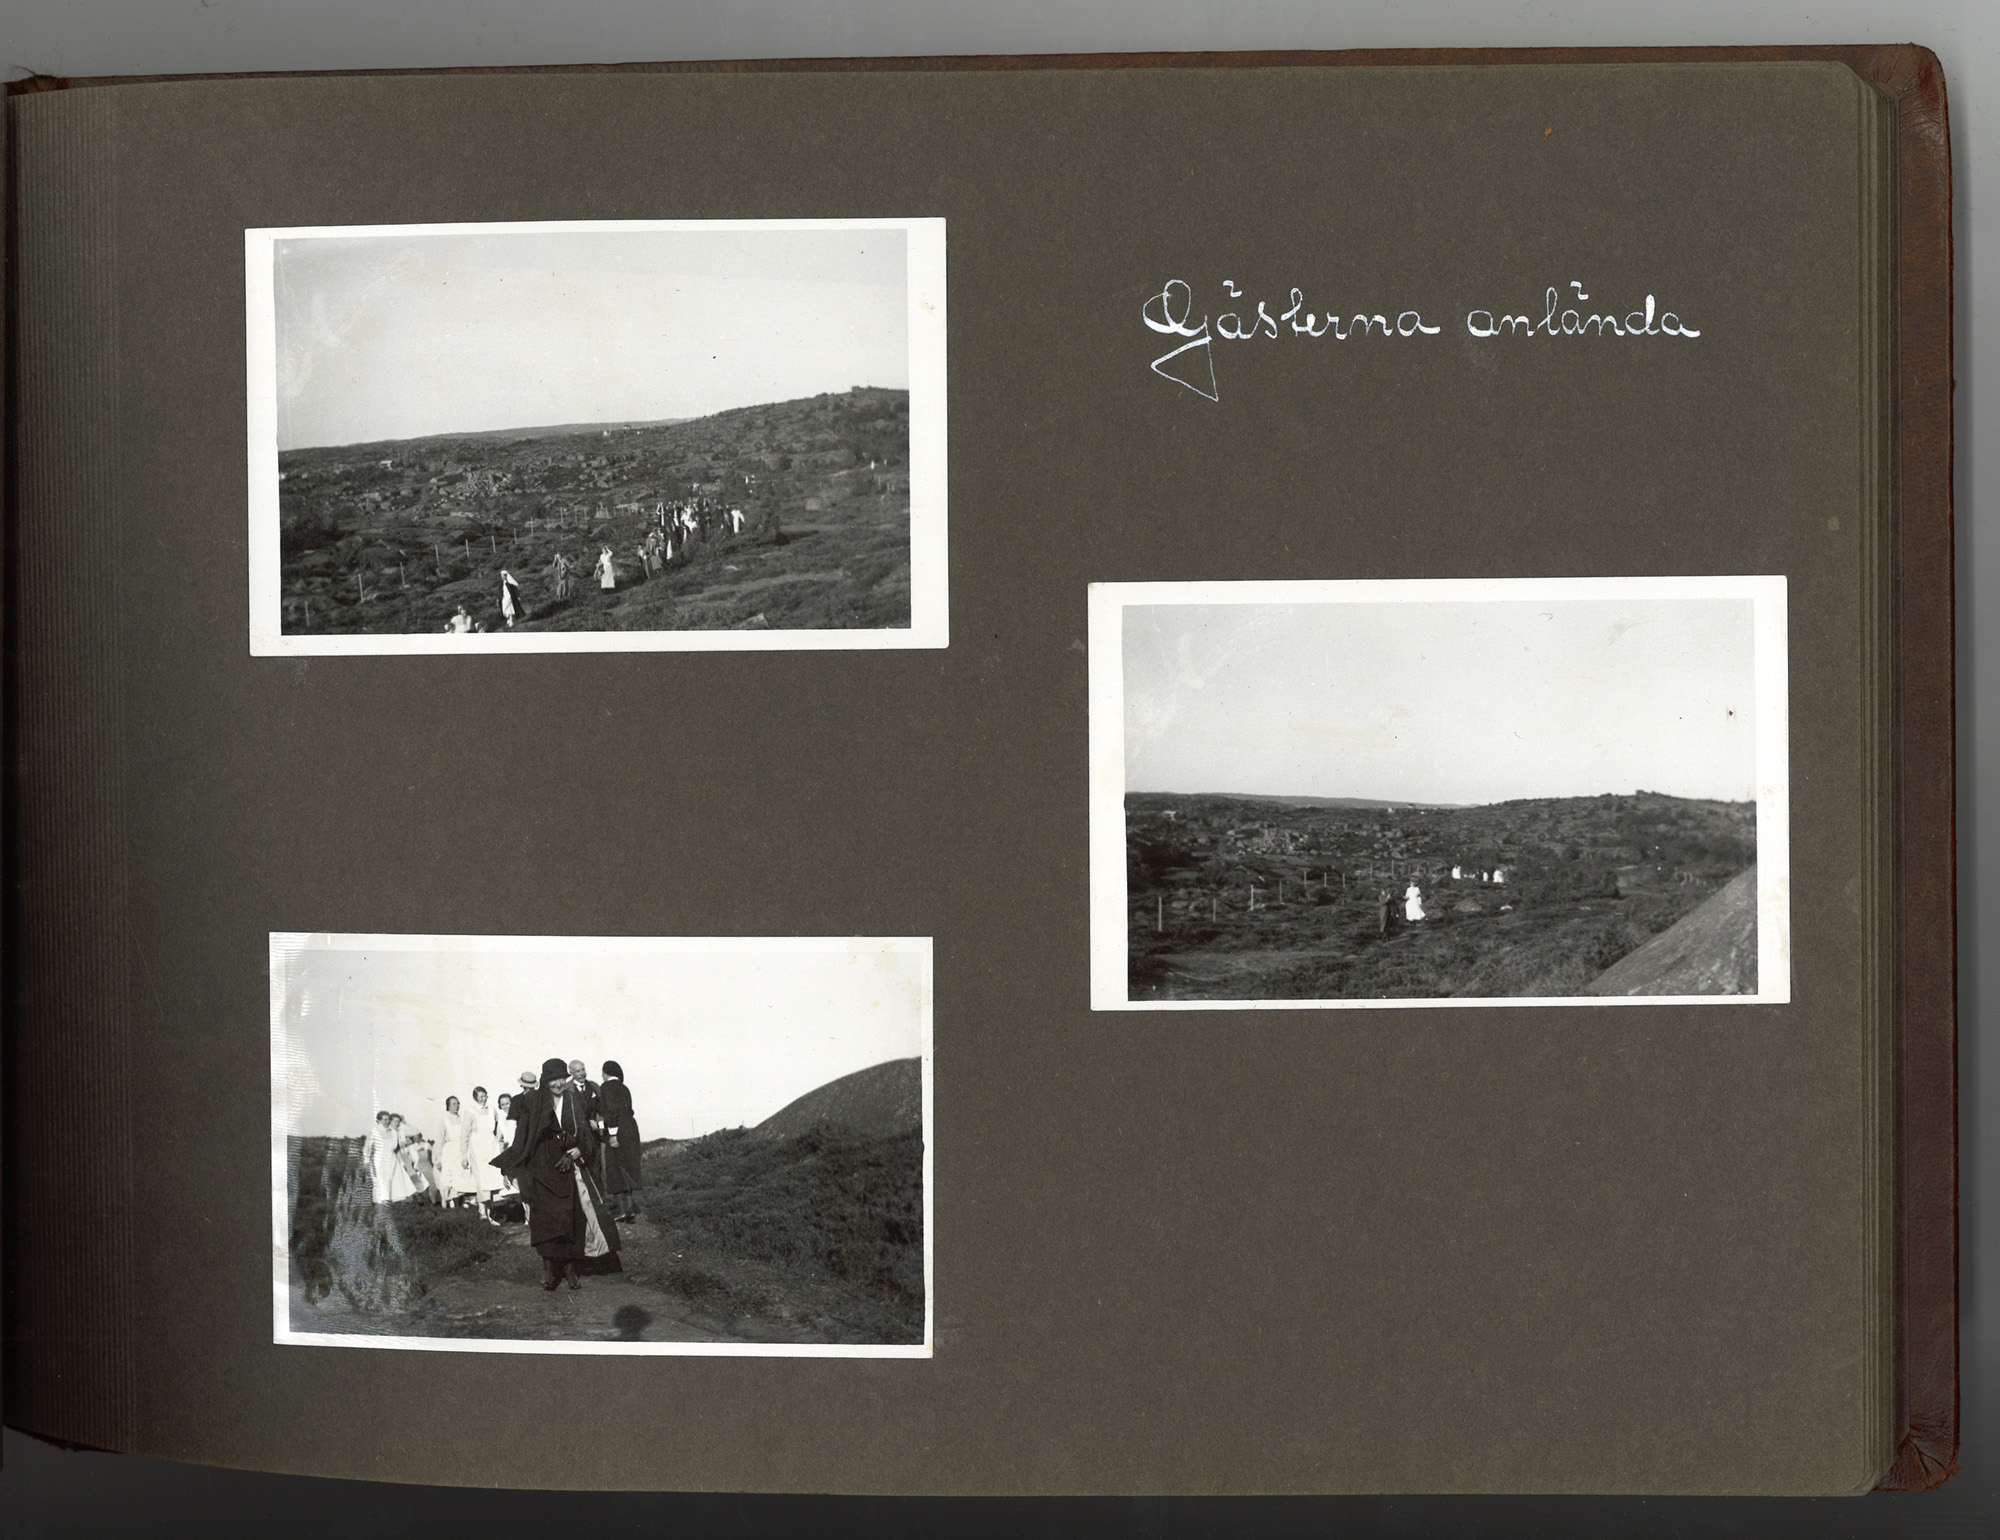 Gästerna anlända